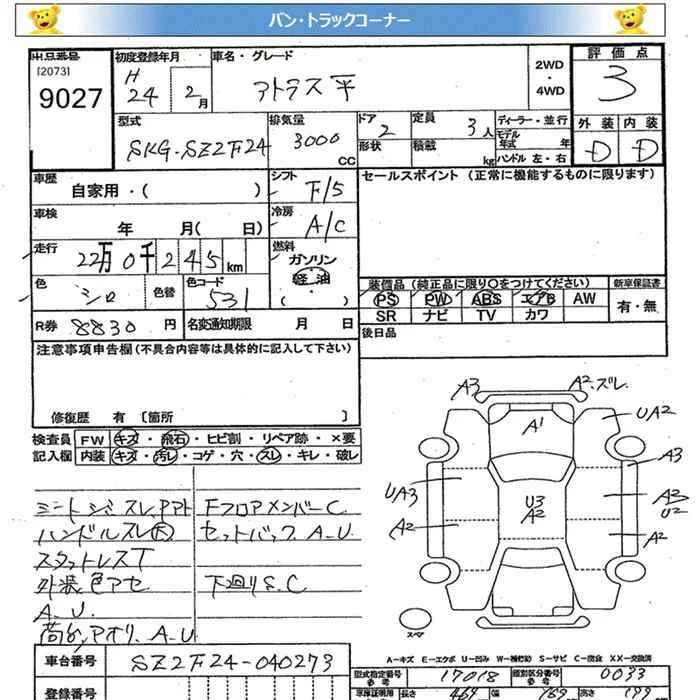 バン・トラックコーナー
出品番号 初度登録年月 車名・グレード 2WD ・ 4WD 評価点
[2073] H
9027 24 2月 アトラス 平 3
型式 排気量 ドア 定員 ディーラー・並行 外装 内装
SKG-SZ2F24 3000 CC 2 3人 モデル年式 年 D D
形状 積載 kg ハンドル 左・右
車歴 シフト セールスポイント (正常に機能するものに限ります)
自家用・( ) F/5
車検 冷房
年 月( 日) A/C
走行 燃料
22万0千245km ガソリン
軽油
色 色替 色コード ( ) 装備品 (純正品に限り○をつけてください) 新車保証書
シロ 531 PS PW ABS エアB AW 有・無
R券 8830円 名変通知期限 月 日 SR ナビ TV カワ
注意事項申告欄(不具合内容等は具体的に記入して下さい) 後日品
修復歴 有 [箇所 ]
検査員 FW キズ・飛石・ヒビ割・リペア跡・×要
記入欄 内装 キズ・汚レ・コゲ・穴・スレ・キレ・破レ
A3 A2.ズレ
A1 UA2
A3
UA3 U3 A2 A3 U2
A2 A2
スペア
ハンドルスレ(大) セットバック A-U
スタットレスT
外装色アセ 下廻りS.C
A-U
荷台,アオリ A-U
Fフロアメンバー C
A-キズ E-エクボ U-凹み W-補修跡 S-サビ C-腐食 XX-交換済
車台番号 SZ2F24-040273
型式指定番号 17018 類別区分番号 0033
登録番号
長さ 469 幅 169 高さ 199